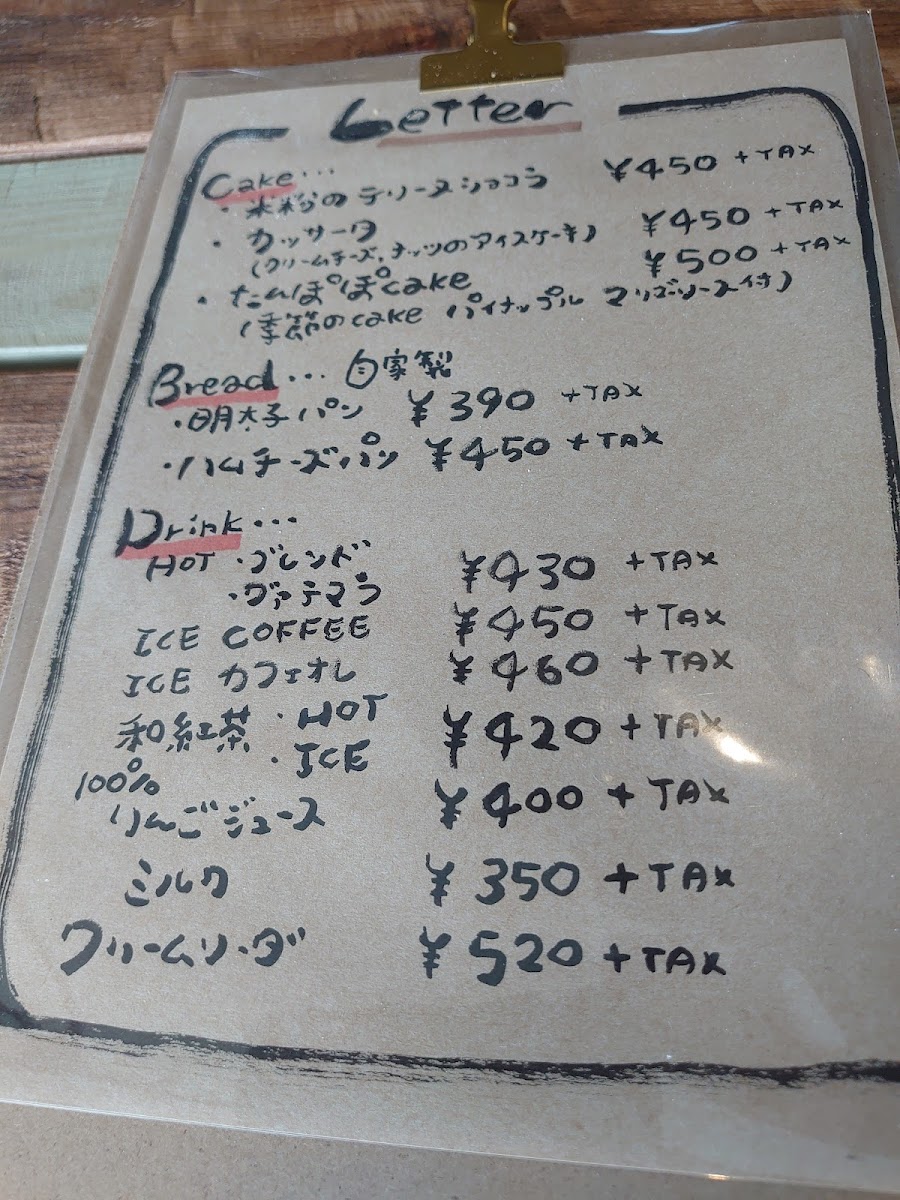 Letter
Cake...
・米粉のテリーヌショコラ ¥450 +TAX
・カッサータ ¥450 +TAX
(クリームチーズ,ナッツのアイスケーキ)
・たんぽぽcake ¥500 +TAX
(季節のcake パイナップル マリブソース付)
Bread... 自家製
・明太子パン ¥390 +TAX
・ハムチーズパン ¥450 +TAX
Drink...
HOT ・ブレンド ¥430 +TAX
・グァテマラ
ICE COFFEE ¥450 +TAX
ICE カフェオレ ¥460 +TAX
和紅茶 ・HOT ¥420 +TAX
・ICE
100%
りんごジュース ¥400 +TAX
ミルク ¥350 +TAX
クリームソーダ ¥520 +TAX